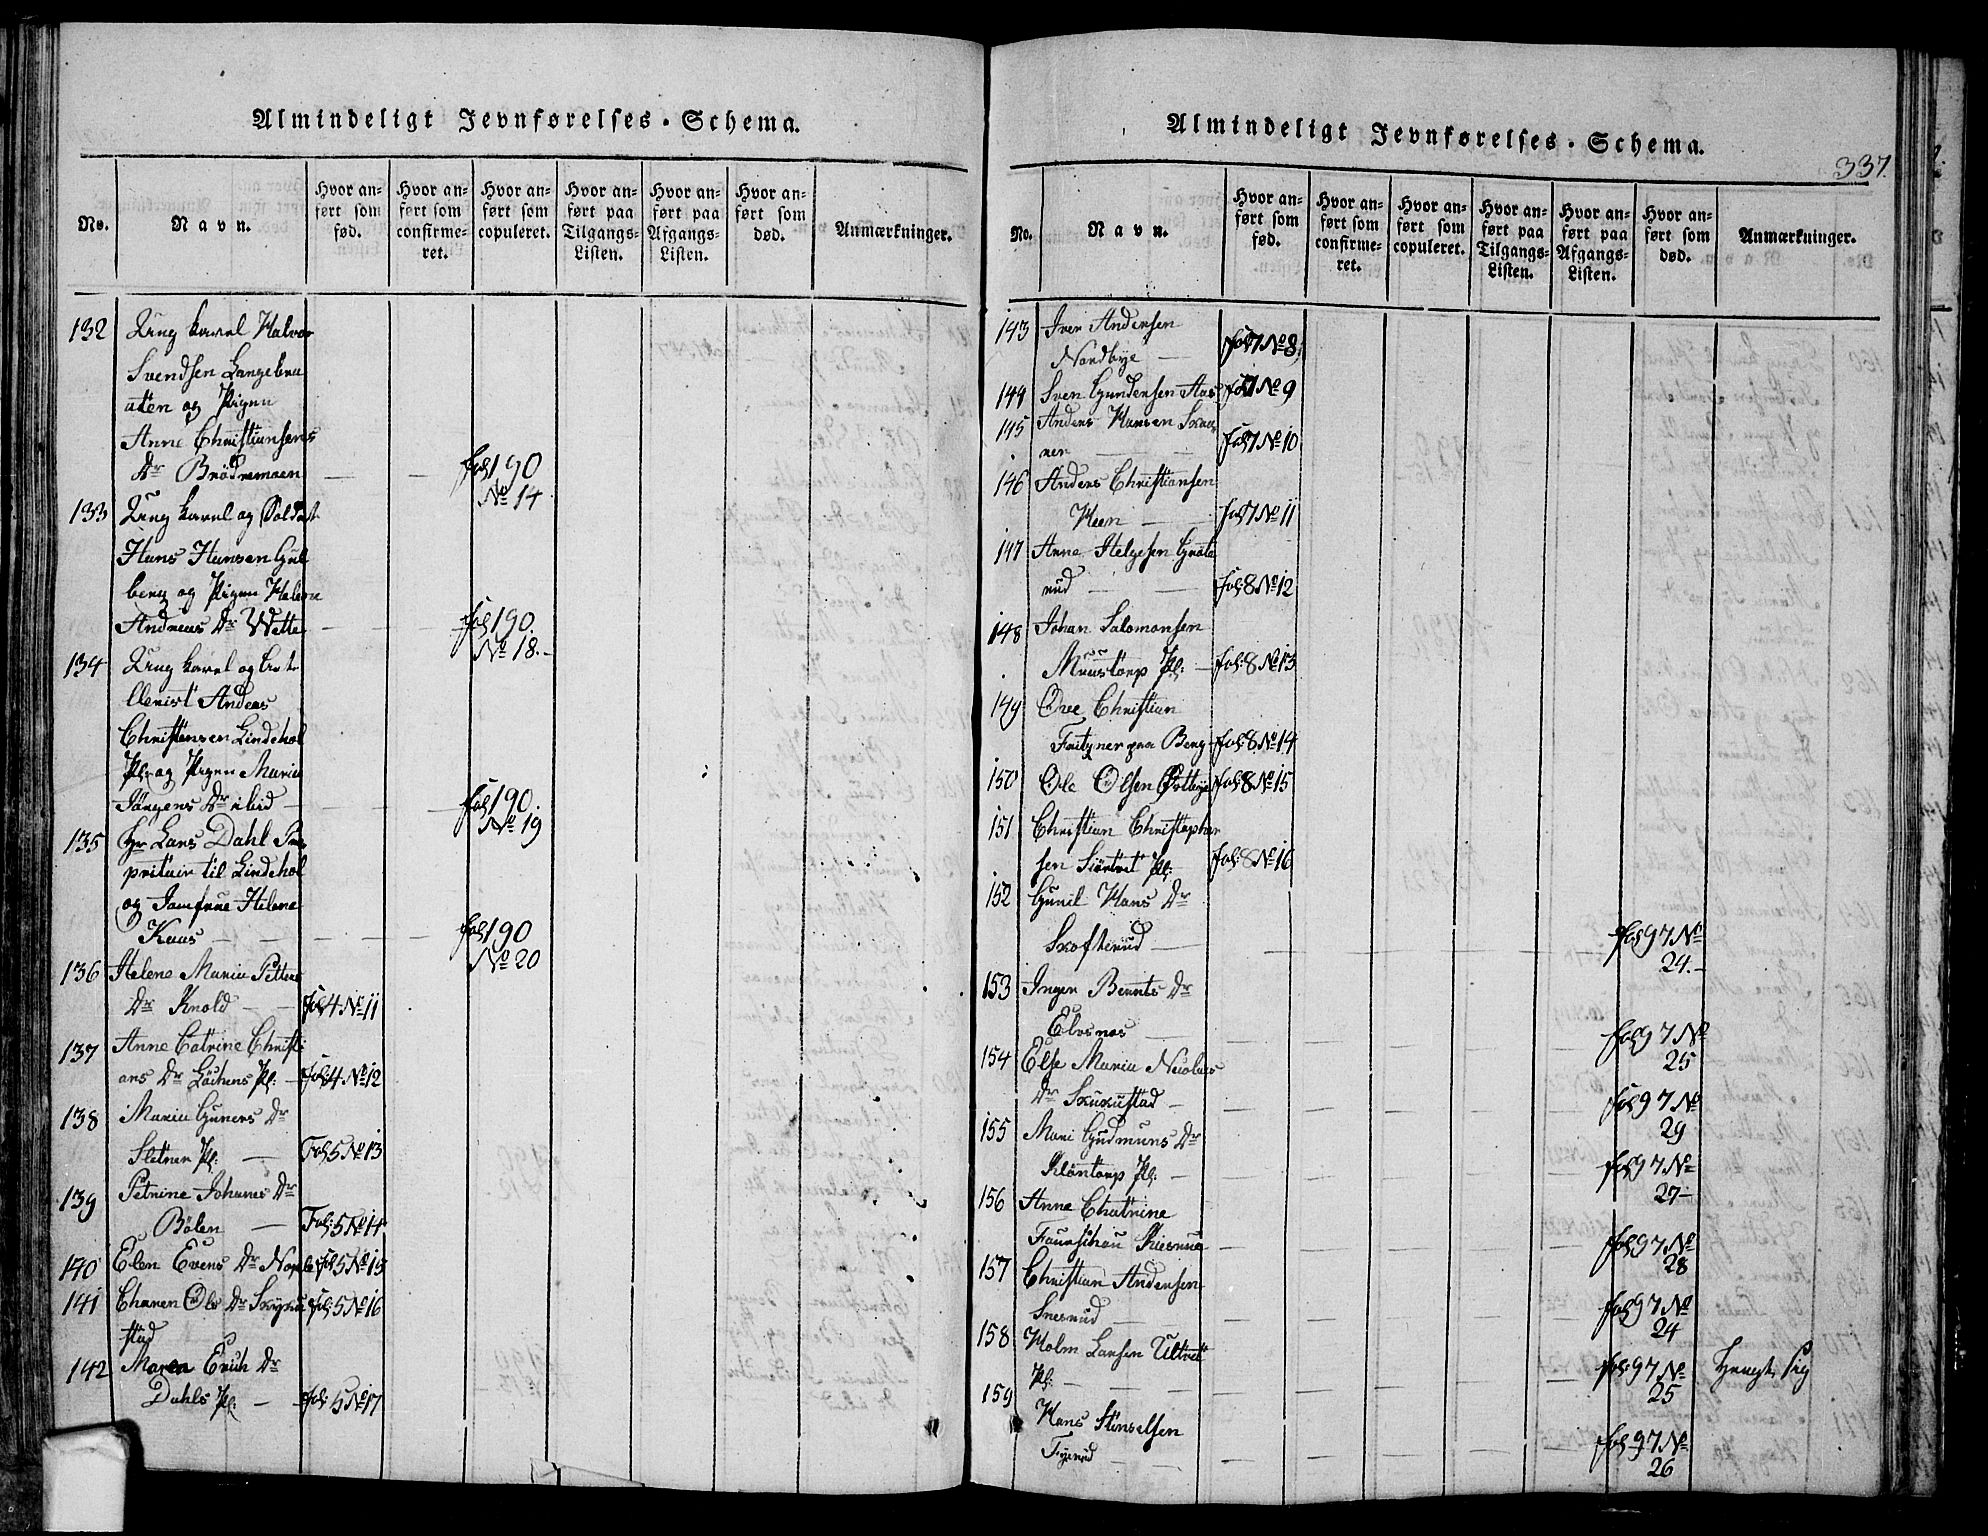 Almindeligt Jevnførelses-Schema.
No.
Navn.
Hvor an-
ført som
fød.
Hvor an-
ført som
confirme-
ret.
Hvor an-
ført som
copuleret.
Hvor an-
ført paa
Tilgangs-
Listen.
Hvor an-
ført paa
Afgangs-
Listen.
Hvor an-
ført som
død.
Anmærkninger.
132 Ung karl Halvor
Svendsen Langebra
aten og Pigen
Anne Christiansens
Dr Brödremoen — — fol 190
No 14
133 Ung karl og Soldat
Hans Hansen Gul
berg og Pigen Malene
Andreas Dr Wette — — fol 190.
No 18.-
134 Ung karl og
Anders
Christensen Lindehol
Pl: og Pigen Maria
Jörgens Dr ibid — — fol 190.
No 19
135 Hr Lars Dahl Pro
pritair til Lindehol
og Jomfrue Helene
Kaas — — fol 190
No 20
136 Helene Maria Petters
Dr Knold — Fol 4 No 11
137 Anne Catrine Christi
ans Dr Löchens Pl: — Fol: 4 No 12
138 Maria Guners Dr
Sletner Pl: — Fol: 5 No 13
139 Petrine Johanes Dr
Bölen — Fol: 5 No 14
140 Elen Evens Dr fol 5 No 15
141 Charen Ols Dr Skuku fol: 5 No 16
stad
142 Maren Erich Dr
Dahls Pl: — fol: 5 No 17
Almindeligt Jevnførelses-Schema.
337
No.
Navn.
Hvor an-
ført som
fød.
Hvor an-
ført som
confirme-
ret.
Hvor an-
ført som
copuleret.
Hvor an-
ført paa
Tilgangs-
Listen.
Hvor an-
ført paa
Afgangs-
Listen.
Hvor an-
ført som
død.
Anmærkninger.
143 Iver Andersen
Nordbye — fol 7 No 8
144 Sven Gundersen Aas fol 7 No 9
145 Anders Hansen Skaa
ner — fol 7 No 10
146 Anders Christiansen
Meen — fol 7 No 11
147 Anne Helgesen Grøte
rud — fol: 8 No 12
148 Johan Salomonsen
Muustorp Pl: fol: 8 No 13
149 Ove Christian
Fritzner paa Berg fol: 8 No 14
150 Ole Olsen fol: 8 No 15
151 Christian Christopher
sen Siöret Pl: fol: 8 No 16
152 Gunil Hans Dr
Skofterud — fol 97 No
24.-
153 Inger Bernts Dr
Elvsnes — fol 97 No
25
154 Else Maria Nicolais
Dr Skukustad — fol 97 No
29
155 Mari Gudmuns Dr
Klöntorp Pl: — fol 97 No
27-
156 Anne Chatrine
Faurschau Kiesrue fol 97 No
28
157 Christian Andersen
Snesrud — fol 97 No
24
158 Holm Larsen Ultvet
Pl: — fol 97 No Hengt sig
25
159 Hans Stenselsen
Fyerud — fol 97 No
26